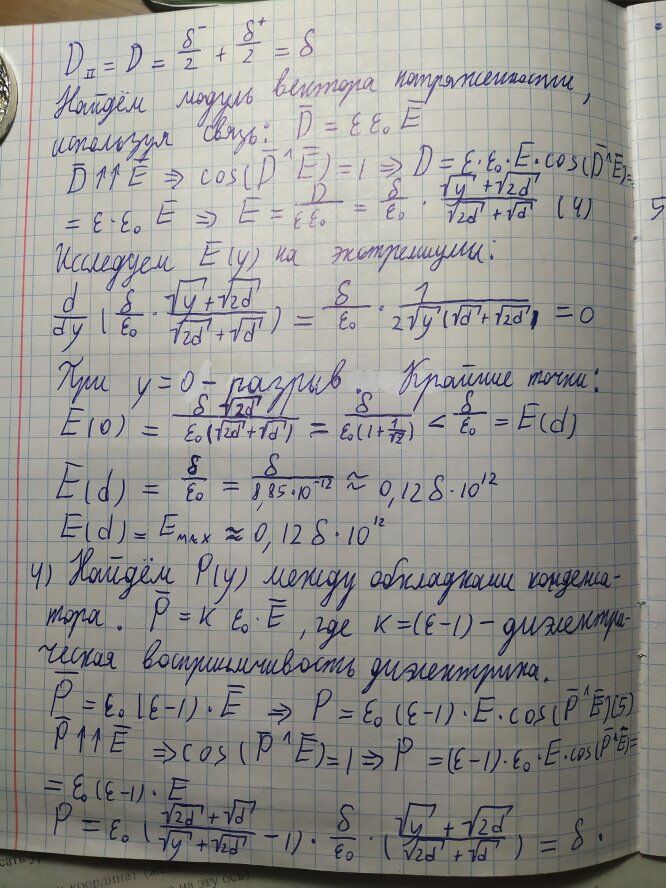 D_II = D = δ⁻/2 + δ⁺/2 = δ
Найдём модуль вектора напряженности,
используя связь: D̄ = εε₀Ē
D̄↑↑Ē ⇒ cos(D̄^Ē)=1 ⇒ D=ε·ε₀·E·cos(D̄^Ē)=
= ε·ε₀E ⇒ E = D/(εε₀) = δ/ε₀ · (√y+√2d)/(√2d+√d) (4)
Исследуем E(y) на экстремумы:
d/dy (δ/ε₀ · (√y+√2d)/(√2d+√d)) = δ/ε₀ · 1/(2√y(√d+√2d)) = 0
При y=0 – разрыв. Крайние точки:
E(0) = δ√2d/(ε₀(√2d+√d)) = δ/(ε₀(1+1/√2)) < δ/ε₀ = E(d)
E(d) = δ/ε₀ = δ/(8,85·10⁻¹²) ≈ 0,12δ·10¹²
E(d) = E_max ≈ 0,12δ·10¹²
4) Найдём P(y) между обкладками конденса-
тора. P̄ = κ ε₀·Ē, где κ=(ε-1) – диэлектри-
ческая восприимчивость диэлектрика.
P̄ = ε₀(ε-1)·Ē ⇒ P=ε₀(ε-1)·E·cos(P̄^Ē)(5)
P̄↑↑Ē ⇒ cos(P̄^Ē)=1 ⇒ P=(ε-1)·ε₀·E·cos(P̄^Ē)=
= ε₀(ε-1)·E
P = ε₀((√2d+√d)/(√y+√2d) -1)· δ/ε₀ ·((√y+√2d)/(√2d+√d)) = δ·
5
координат
на эту ось)